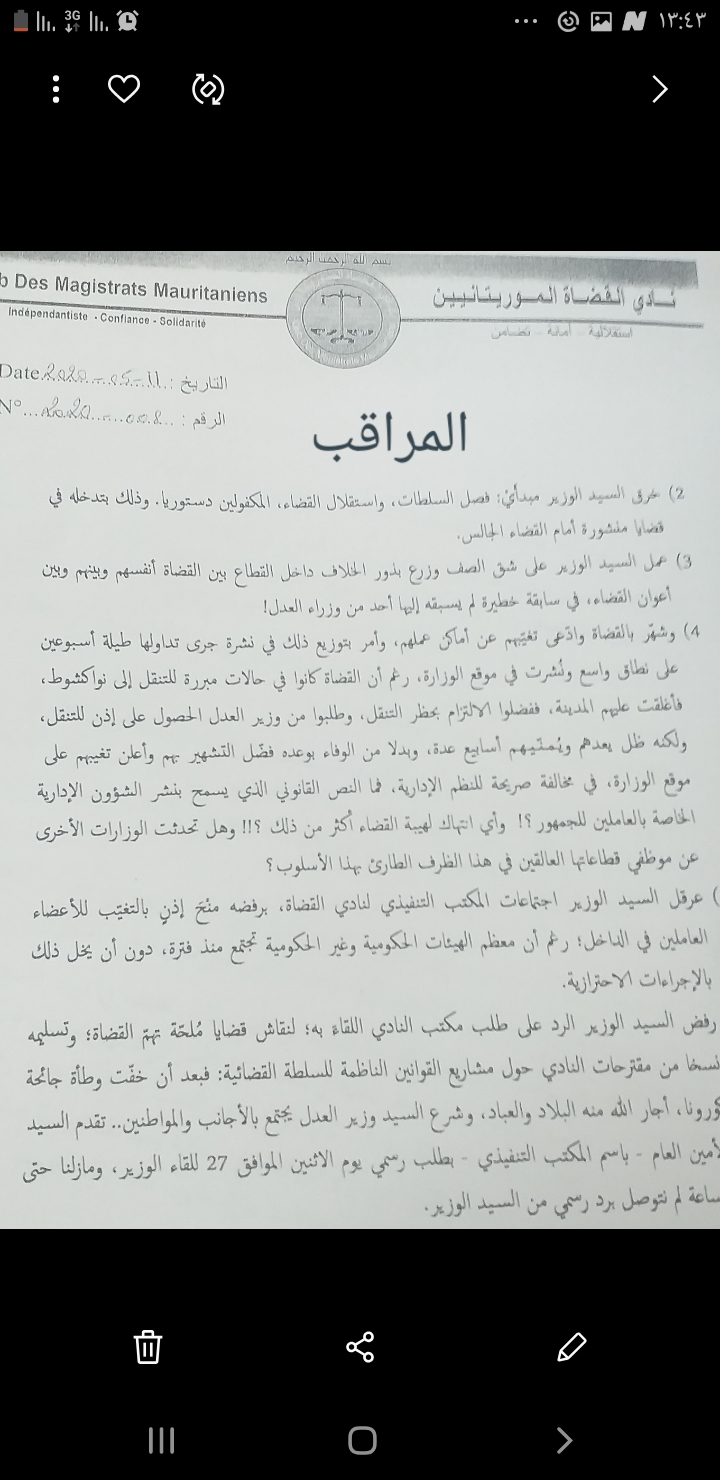 3G
١٣:٤٣
بسم الله الرحمن الرحيم
b Des Magistrats Mauritaniens
نادي القضاة الموريتانيين
Indépendantiste - Confiance - Solidarité
استقلالية - أمانة - تضامن
Date 2020-05-11 التاريخ :
N° 2020 008 الرقم :
المراقب
2) خرق السيد الوزير مبدأيْ: فصل السلطات، واستقلال القضاء، المكفولين دستوريا. وذلك بتدخله في
قضايا منشورة أمام القضاء الجالس.
3) عمل السيد الوزير على شق الصف وزرع بذور الخلاف داخل القطاع بين القضاة أنفسهم وبينهم وبين
أعوان القضاء، في سابقة خطيرة لم يسبقه إليها أحد من وزراء العدل!
4) وشهّر بالقضاة وادّعى تغيّبهم عن أماكن عملهم، وأمر بتوزيع ذلك في نشرة جرى تداولها طيلة أسبوعين
على نطاق واسع ونُشرت في موقع الوزارة، رغم أن القضاة كانوا في حالات مبررة للتنقل إلى نواكشوط،
فأغلقت عليهم المدينة، ففضلوا الالتزام بحظر التنقل، وطلبوا من وزير العدل الحصول على إذن للتنقل،
ولكنه ظل يعدهم ويُمنّيهم أسابيع عدة، وبدلا من الوفاء بوعده فضّل التشهير بهم وأعلن تغيبهم على
موقع الوزارة، في مخالفة صريحة للنظم الإدارية، فما النص القانوني الذي يسمح بنشر الشؤون الإدارية
الخاصة بالعاملين للجمهور ؟! وأي انتهاك لهيبة القضاء أكثر من ذلك ؟!! وهل تحدثت الوزارات الأخرى
عن موظفي قطاعاتها العالقين في هذا الظرف الطارئ بهذا الأسلوب؟
) عرقل السيد الوزير اجتماعات المكتب التنفيذي لنادي القضاة، برفضه منْحَ إذنٍ بالتغيّب للأعضاء
العاملين في الداخل؛ رغم أن معظم الهيئات الحكومية وغير الحكومية تجتمع منذ فترة، دون أن يخل ذلك
بالإجراءات الاحترازية.
رفض السيد الوزير الرد على طلب مكتب النادي اللقاءَ به؛ لنقاش قضايا مُلحّة تهمّ القضاة؛ وتسليمه
نسخا من مقترحات النادي حول مشاريع القوانين الناظمة للسلطة القضائية: فبعد أن خفّت وطأة جائحة
كورونا، أجار الله منه البلاد والعباد، وشرع السيد وزير العدل يجتمع بالأجانب والمواطنين.. تقدم السيد
لأمين العام - باسم المكتب التنفيذي - بطلب رسمي يوم الاثنين الموافق 27 للقاء الوزير، ومازلنا حتى
ساعة لم نتوصل برد رسمي من السيد الوزير.